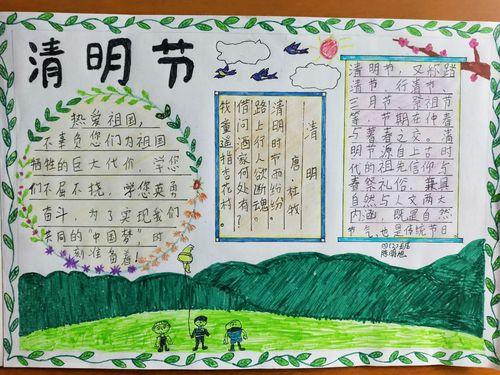 清明节
热爱祖国,
不辜负您们为祖国
牺牲的巨大代价
学您
们不屈不挠,学您英勇
奋斗,为了实现我们
共同的“中国梦”时
刻准备着!
清明
唐 杜牧
清明时节雨纷纷,
路上行人欲断魂。
借问酒家何处有?
牧童遥指杏花村。
清明节,又称踏
青节、行清节、
三月节、祭祖节
等,节期在仲春
与暮春之交。清
明节源自上古时
代的祖先信仰与
春祭礼俗,兼具
自然与人文两大
内涵,既是自然
节气,也是传统节日